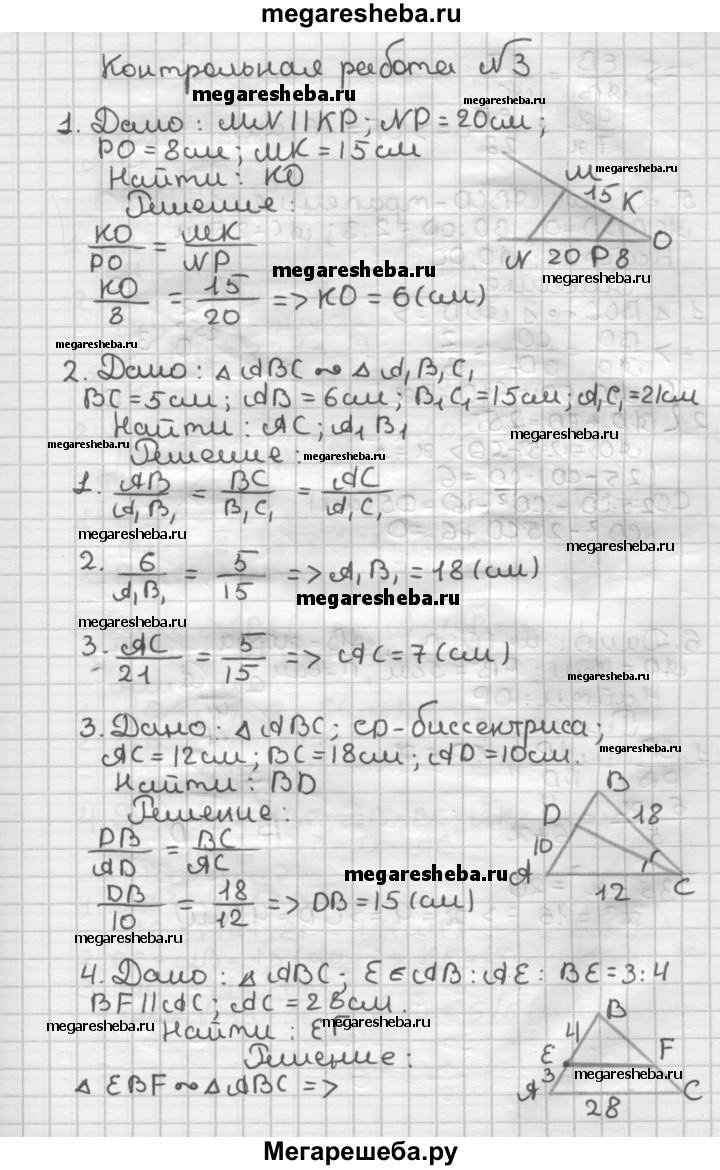 megaresheba.ru
Контрольная работа №3
megaresheba.ru
megaresheba.ru
1. Дано: MN || KP; NP = 20см;
PO = 8см; MK = 15см
Найти: KO
megaresheba.ru
Решение:
M
15
K
O
N 20 P 8
KO/PO = MK/NP
megaresheba.ru
megaresheba.ru
KO/8 = 15/20 => KO = 6(см)
megaresheba.ru
2. Дано: △ABC ∾ △A₁B₁C₁
BC=5см; AB=6см; B₁C₁=15см; A₁C₁=21см
Найти: AC; A₁B₁
megaresheba.ru
megaresheba.ru
Решение:
megaresheba.ru
1. AB/A₁B₁ = BC/B₁C₁ = AC/A₁C₁
megaresheba.ru
megaresheba.ru
2. 6/A₁B₁ = 5/15 => A₁B₁ = 18(см)
megaresheba.ru
megaresheba.ru
3. AC/21 = 5/15 => AC = 7(см)
megaresheba.ru
3. Дано: △ABC; CD-биссектриса;
AC=12см; BC=18см; AD=10см.
megaresheba.ru
Найти: BD
Решение:
B
D
18
10
A
12
C
DB/AD = BC/AC
megaresheba.ru
DB/10 = 18/12 => DB=15(см)
megaresheba.ru
megaresheba.ru
4. Дано: △ABC; E∈AB: AE: BE=3:4
BF||AC; AC=28см.
megaresheba.ru
megaresheba.ru
Найти: EF
Решение:
B
4
E
F
megaresheba.ru
A
3
C
28
△EBF ∾ △ABC =>
Мегарешеба.ру